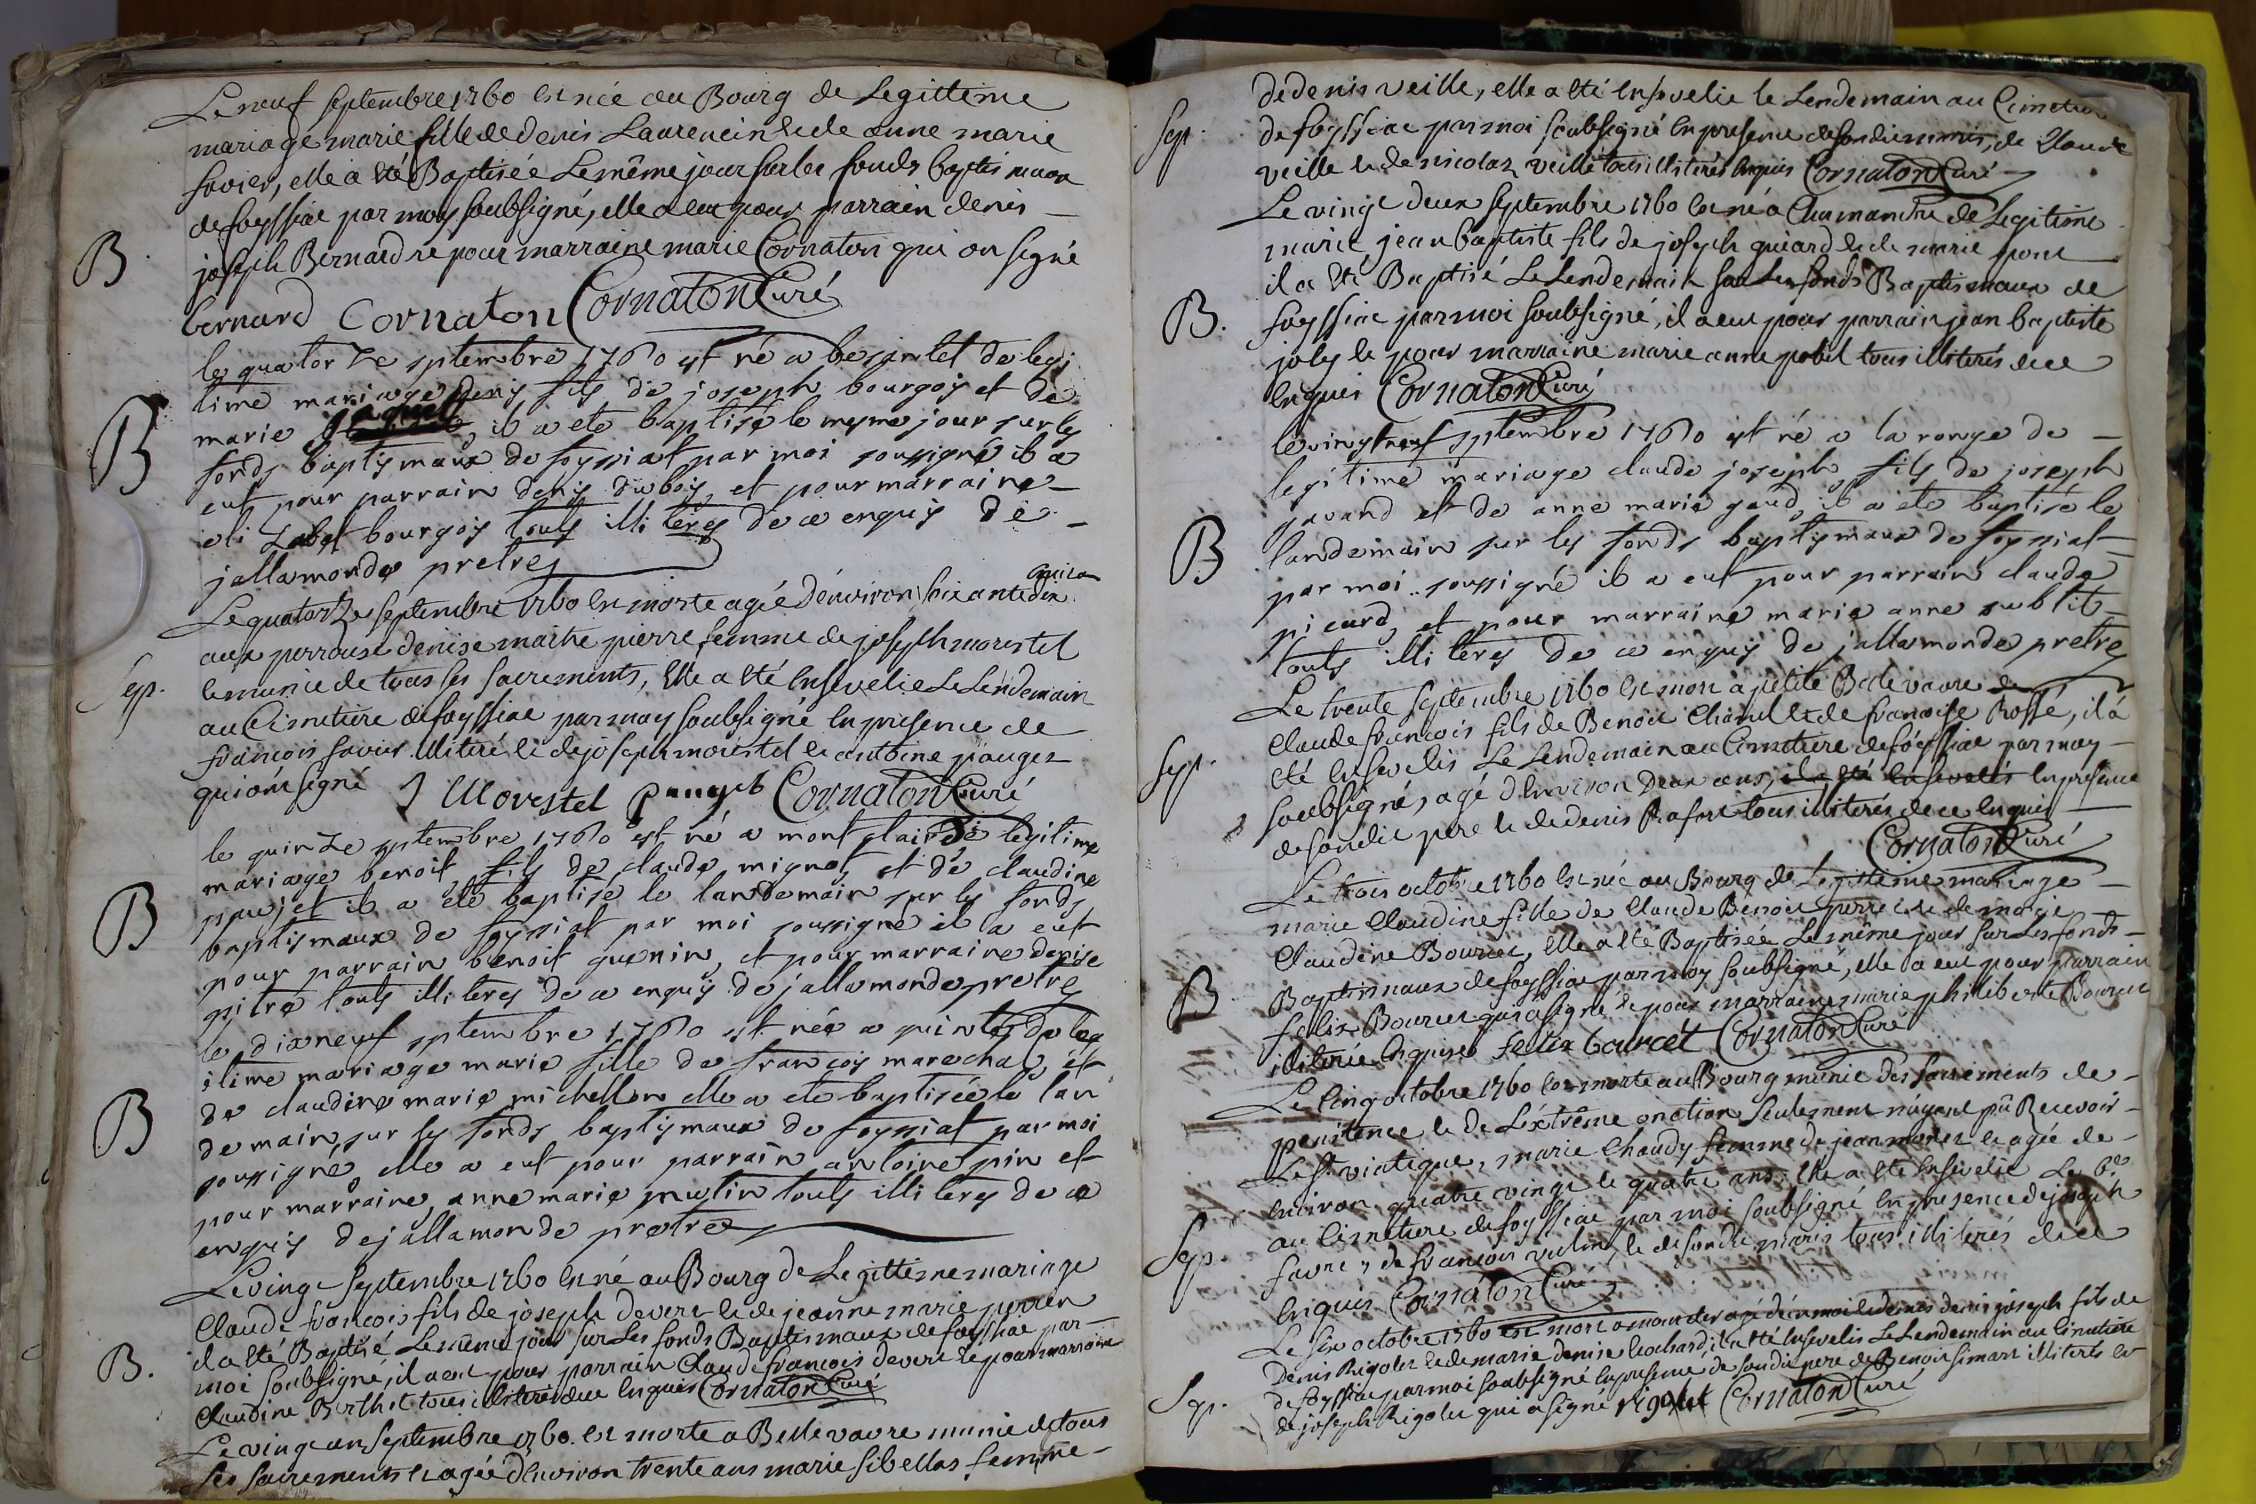 Le neuf septembre 1760 est née au Bourg de Legittime
mariage marie fille de denis Laurencin et de anne marie
favier, elle a été Baptisée Le même jour sur les fonds baptismaux
de foyssiac par moy soubsigné, elle a eut pour parrain denis
B. joseph Bernard et pour marraine marie Cornaton qui on signé
bernard Cornaton Cornaton Curé
le quatorze septembre 1760 est né a besintet de legi
time mariage denis fils de joseph bourgois et de
B marie il a ete baptisé le mesme jour sur les
fonds baptismaux de foyssiat par moi soussigné il a
eut pour parrain denis dubois et pour marraine
eli Zabet bourgois touts illiteres de ce enquis de
jallamondes pretre
environ
Le quatorze septembre 1760 est morte agée d'environ soixante dix
aux perrouse denise mathé pierre femme de joseph morestel
Sep. et munie de tous ses sacrements, Elle a été Ensevelie Le Lendemain
au Cimetiere de foyssiac par moy soubsigné En presence de
francois favier illiteré et de joseph morestel et antoine pauget
qui ont signé J Morestel pauget Cornaton Curé
le quinze septembre 1760 est né a mont plain de legitime
mariage benoit fils de claude mignot et de claudine
B paujet il a été baptisé le landemain sur les fonds
baptismaux de foyssiat par moi soussigné il a eut
pour parrain benoit guenin, et pour marraine denise
pitre touts illiteres de ce enquis de jallamondes pretre
le dixneuf septembre 1760 est née a pintes de leg
itime mariage marie fille de françois marechal et
B de claudine marie michellon elle a ete baptisée le lan
demain, sur les fonds baptismaux de foyssiat par moi
soussigné elle a eut pour parrain antoine pin et
pour marraine, anne marie mutin touts illiteres de ce
enquis dejallamonde pretre
Le vingt septembre 1760 est né au Bourg de Legittime mariage
Claude francois fils de joseph devere et de jeanne marie perren
B. il a été Baptisé Le même jour sur Les fonds Baptismaux de foyssiac par
moi soubsigné, il a eut pour parrain Claude francois devere et pour marraine
Claudine Berthet tous illiteres de ce Enquis Cornaton Curé
Le vingt un septembre 1760. est morte a Bellevavre munie de tous
ses sacrements et agée d'Environ trente ans marie sibellas femme
de denis veille, elle a été Ensevelie le Lendemain au Cimetiere
Sep. de foyssiac par moi soubsigné En presence de son dit maris, de Claude
veille et de nicolas veille tous illiterés Enquis Cornaton Curé
Le vingt deux septembre 1760 est né a Chamandre de Legitime
mariage jean baptiste fils de joseph guiard et de marie pont
il a été Baptisé Le Lendemain sur Les fonds Baptismaux de
B. foyssiac par moi soubsigné, il a eut pour parrain jean baptiste
joly et pour marraine marie anne pobel tous illiterés de ce
Enquis Cornaton Curé
le vingt neuf septembre 1760 est né a la ronge de
legitime mariage claude joseph fils de joseph
gavand et de anne marie gaud, il a ete baptisé le
B landemain sur les fonds baptismaux de foyssiat
par moi soussigné il a eut pour parrain claude
picard, et pour marraine marie anne sublit
touts illiteres de ce enquis de jallamondes pretre
Le trente septembre 1760 est mort a petite Bellevavre
Claude francois fils de Benoit Chanel et de francoise Rossé, il a
Sep. été Ensevelis Le Lendemain au Cimetiere de foyssiac par moy
soubsigné, agé d'Environ deux ans, il a été Ensevelis En presence
de son dit pere et de denis Rafort tous illiterés de ce Enquis
Cornaton Curé
Le trois octobre 1760 est née au Bourg de Legitime mariage
marie Claudine fille de Claude Benoit perret et de marie
Claudine Bourcet, Elle a été Baptisée Le même jour sur Les fonds
B Baptismaux de foyssiac par moy soubsigné, elle a eut pour parrain
felix Bourcet qui a signé et pour marraine marie philiberte Bourcet
illiterée Enquise felix bourcet Cornaton Curé
Le Cinq octobre 1760 est morte au Bourg munie des sacrements de
penitence et de L'extrême onction seulement n'ayant pû Recevoir
Le st. viatique, marie Chaudy femme de jean morel et agée de
Environ quatre vingt et quatre ans; Elle a été Ensevelie Le 6e
Sep. au Cimetiere de foyssiac par moi soubsigné En presence de joseph
favre, de francois vulin, et de son dit maris tous illiterés de ce
Enquis Cornaton Curé
Le six octobre 1760 est mort agé d'un mois denis joseph fils de
Denis Rigolet et de marie denise Cochard, il a été Ensevelis Le Lendemain au Cimetiere
Sep. de foyssiac par moi soubsigné En presence de son dit pere de Benoit simart illiterés et
de joseph Rigolet qui a signé rigolet Cornaton Curé